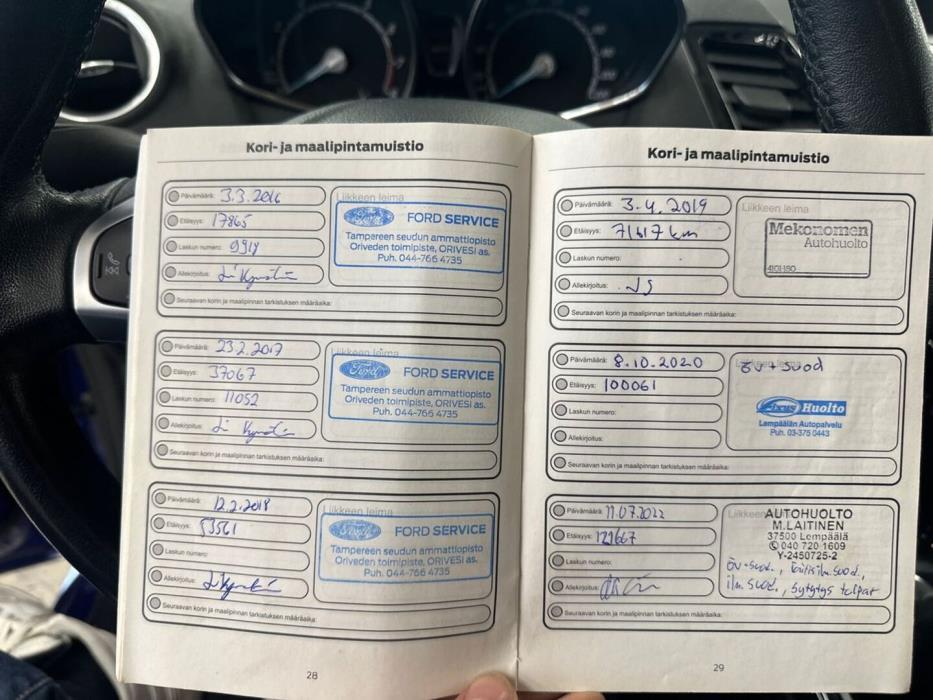 Kori- ja maalipintamuistio
Päivämäärä: 3.3.2016
Etäisyys: 17865
Laskun numero: 9914
Allekirjoitus:
Seuraavan korin ja maalipinnan tarkistuksen määräaika:
Liikkeen leima
Ford FORD SERVICE
Tampereen seudun ammattiopisto
Oriveden toimipiste, ORIVESI as.
Puh. 044-766 4735
Päivämäärä: 23.2.2017
Etäisyys: 37067
Laskun numero: 11052
Allekirjoitus:
Seuraavan korin ja maalipinnan tarkistuksen määräaika:
Liikkeen leima
Ford FORD SERVICE
Tampereen seudun ammattiopisto
Oriveden toimipiste, ORIVESI as.
Puh. 044-766 4735
Päivämäärä: 12.2.2018
Etäisyys: 53561
Laskun numero:
Allekirjoitus:
Seuraavan korin ja maalipinnan tarkistuksen määräaika:
Liikkeen leima
Ford FORD SERVICE
Tampereen seudun ammattiopisto
Oriveden toimipiste, ORIVESI as.
Puh. 044-766 4735
28
Kori- ja maalipintamuistio
Päivämäärä: 3.4.2019
Etäisyys: 71617 km
Laskun numero:
Allekirjoitus:
Seuraavan korin ja maalipinnan tarkistuksen määräaika:
Liikkeen leima
Mekonomen
Autohuolto
Päivämäärä: 8.10.2020
Etäisyys: 100061
Laskun numero:
Allekirjoitus:
Seuraavan korin ja maalipinnan tarkistuksen määräaika:
Liikkeen leima
öv + suod
Huolto
Lempäälän Autopalvelu
Puh. 03-375 0443
Päivämäärä: 11.07.2022
Etäisyys: 121667
Laskun numero:
Allekirjoitus:
Seuraavan korin ja maalipinnan tarkistuksen määräaika:
Liikkeen
AUTOHUOLTO
M.LAITINEN
37500 Lempäälä
040 720 1609
Y-2450725-2
öv+suod., raitisilm.suod.,
ilm.suod., sytytys tulpat
29